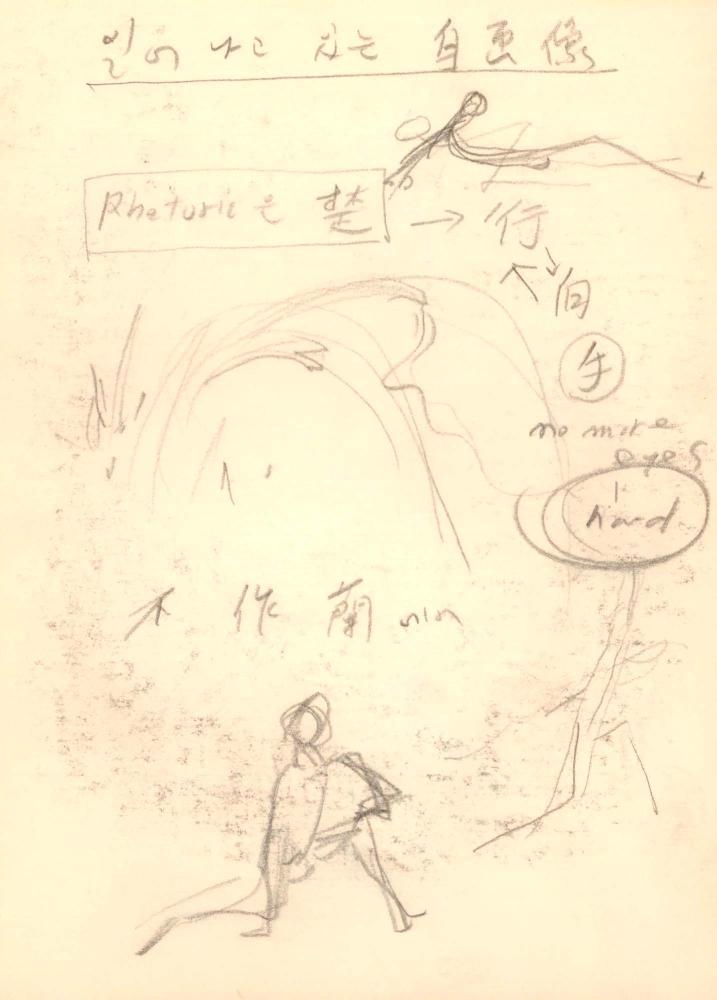 일어 나고 있는 自画像
Rhetoric은 楚 → 行
向
手
no more
eyes
hand
不作蘭